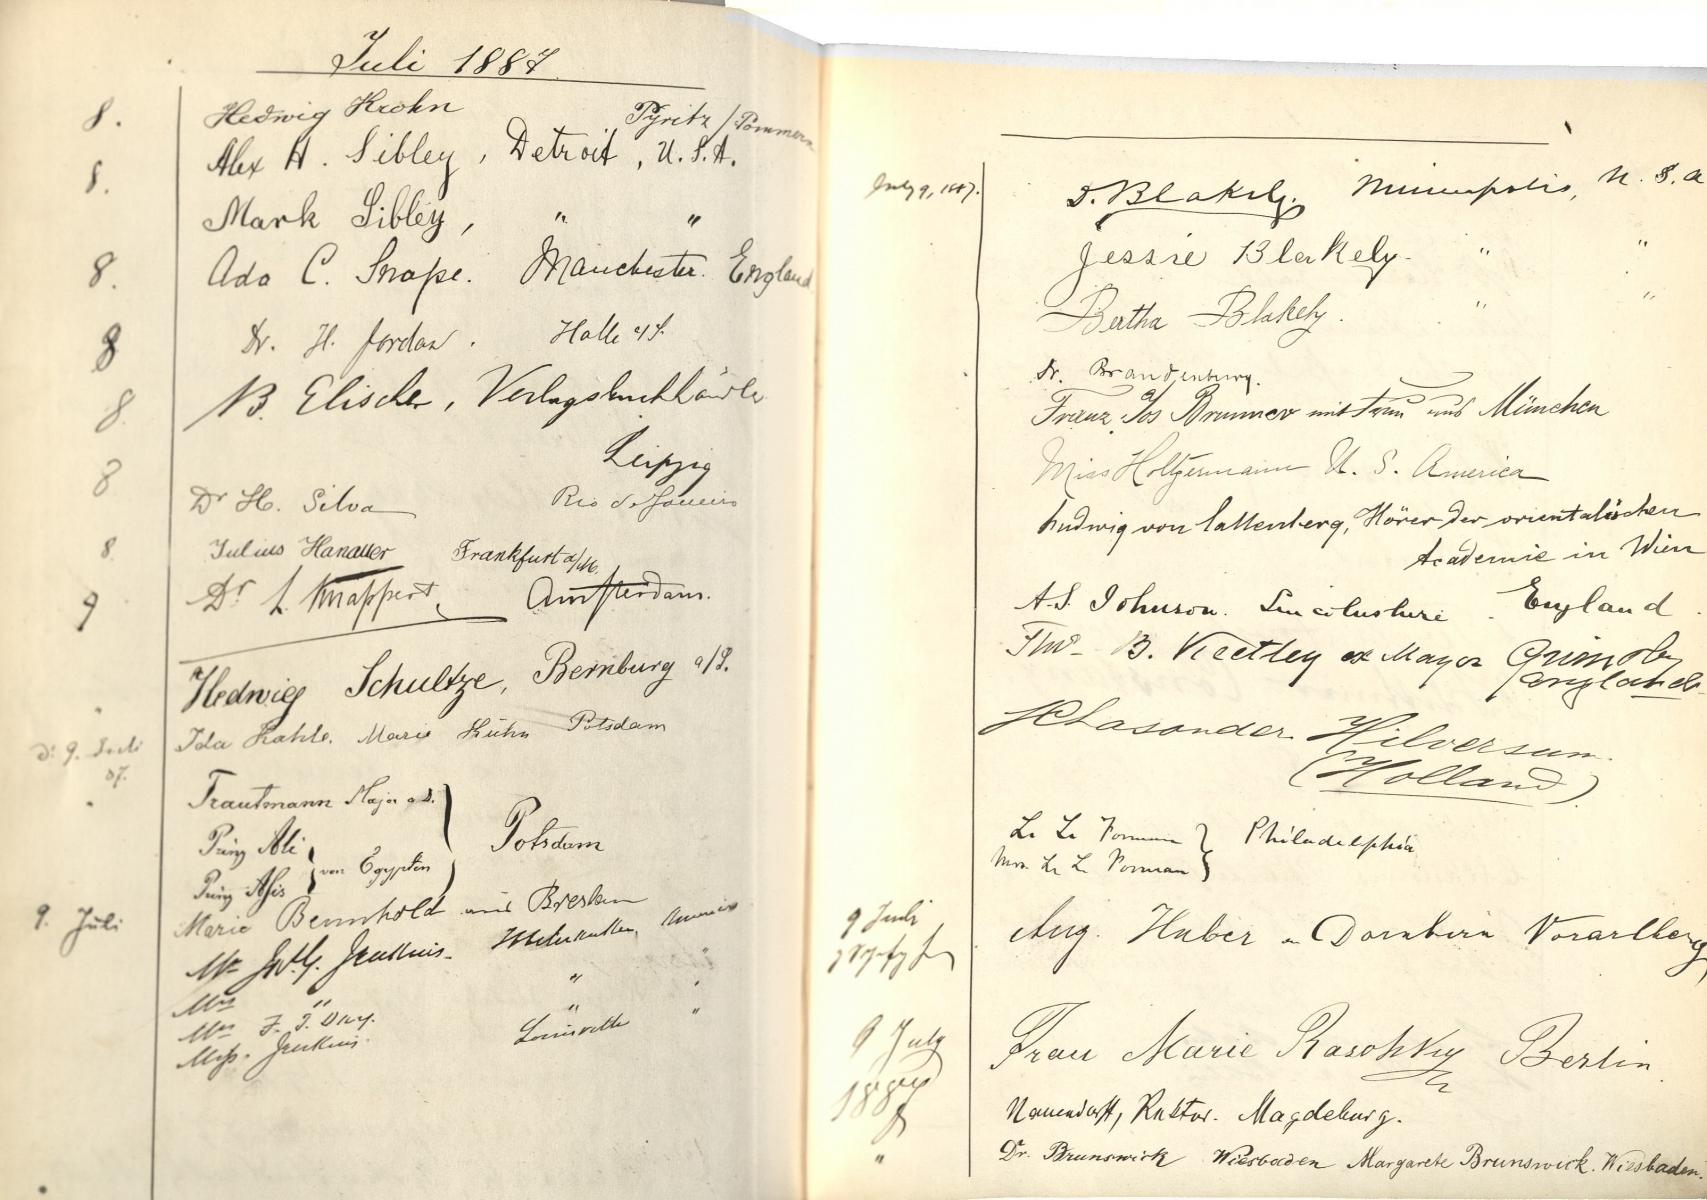 Juli 1887.
8. Hedwig Krohn Pyritz / Pommern
Alex H. Sibley, Detroit, U.S.A.
8. Mark Sibley, " "
8. Ada C. Snape. Manchester. England
8 Dr. H. Jordan. Halle a/S.
8 B. Elischer, Verlagsbuchhändler
Leipzig
8 Dr H. Silva Rio de Janeiro
8. Julius Hanauer Frankfurt a/M.
9 Dr L. Knappert, Amsterdam.
Hedwig Schultze, Bernburg a/S.
Ida Kahle. Marie Kühn Potsdam
d: 9. Juli
87.
Trautmann Major a D.
Prinz Ali
von Egypten
Potsdam
Prinz Asis
9. Juli Marie Bennhold und
Mr Jenkins.
Mrs " "
Mrs F. J. Day. "
Miss. Jenkins. Louisville "
July 9, 1887. D. Blakely. Minneapolis, U. S. A
Jessie Blakely. " "
Bertha Blakely. " "
Dr. Brandenburg.
Franz Jos Brunner mit Frau aus München
Miss Holtzermann U. S. America
Ludwig von Callenberg, Hörer der orientalischen
Academie in Wien
A. S. Johnson. Lincolnshire. England.
Thos B. Keetley ex Mayor Grimsby
England
Lasonder Hilversum.
(Holland)
L. L. Forman
Mrs. L. L. Forman
Philadelphia
9 Juli
Aug. Huber Dornbirn Vorarlberg
9 July
1887
Frau Marie Raschky Berlin
Nauendorff, Rektor. Magdeburg.
" Dr. Brunswick Wiesbaden Margarete Brunswick. Wiesbaden.